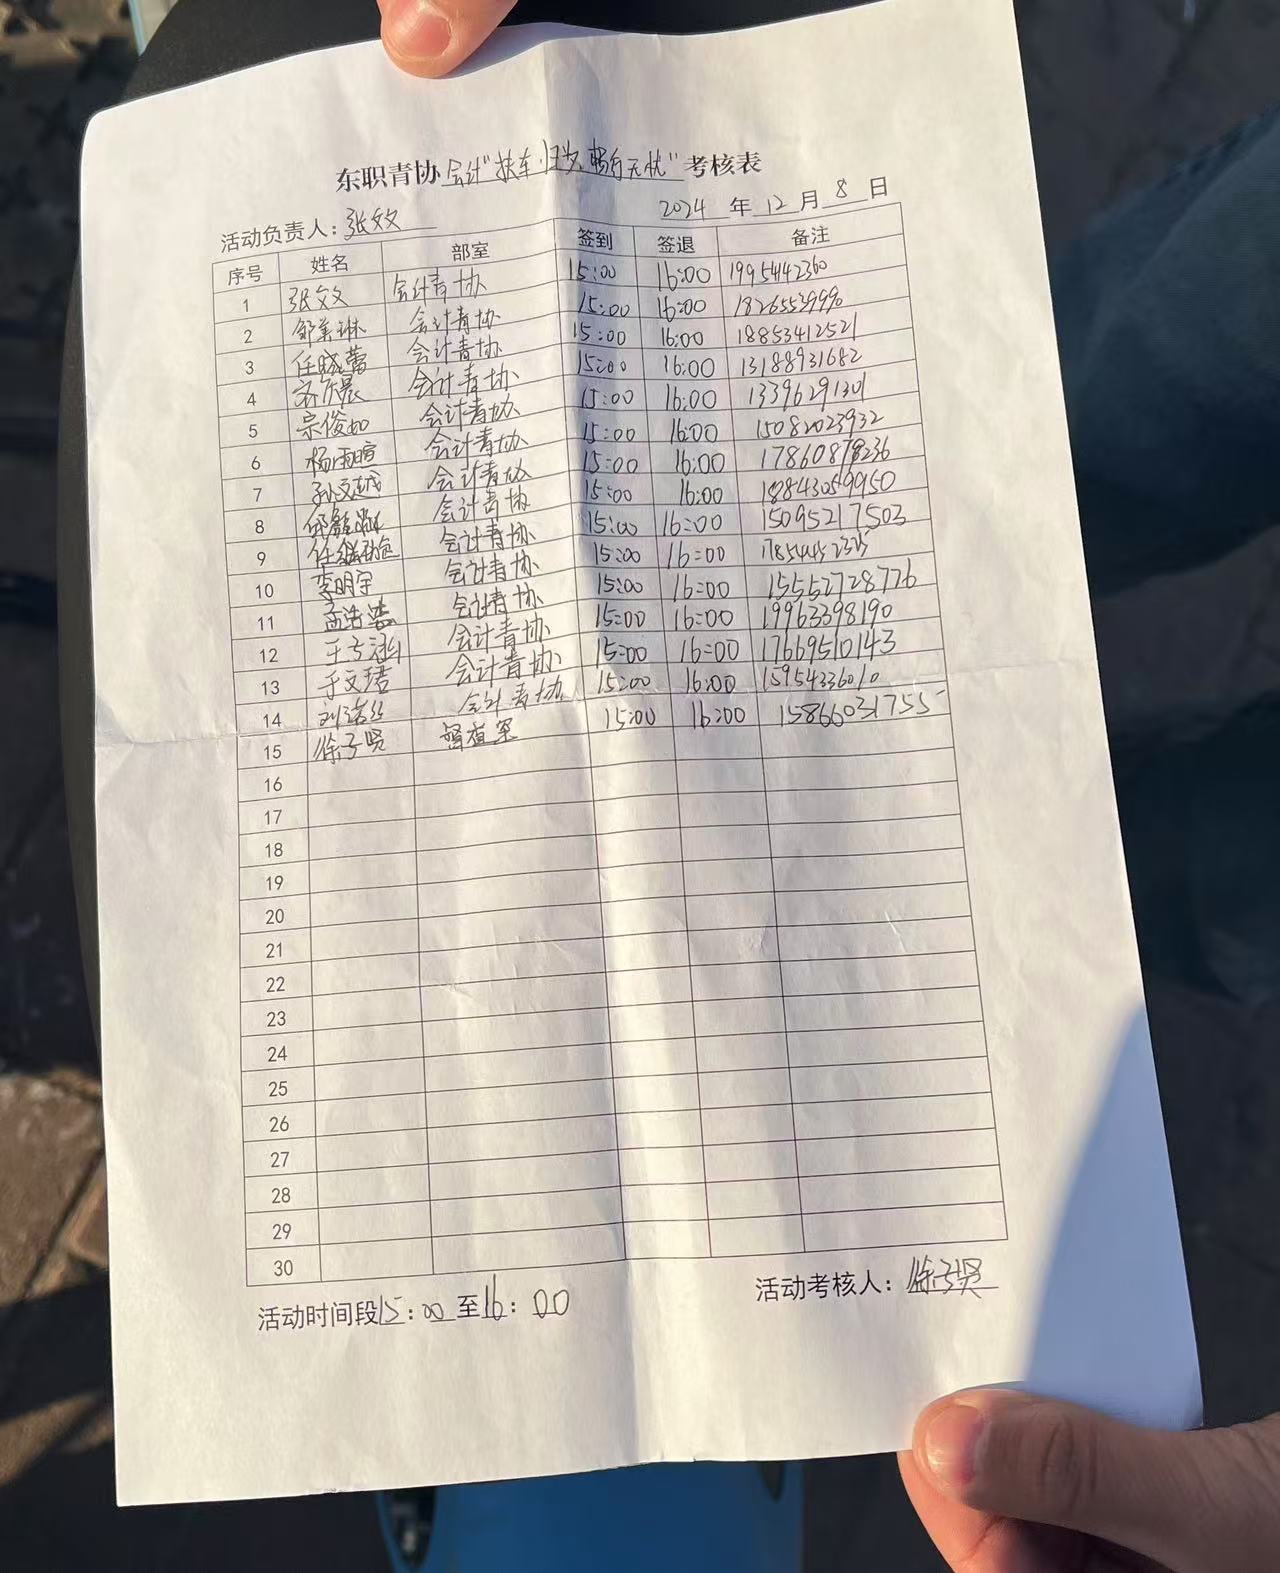 东职青协 会计"扶车归位,畅行无忧" 考核表
活动负责人: 张文文 2024 年 12 月 8 日
序号 姓名 部室 签到 签退 备注
1 张文文 会计青协 15:00 16:00 19954442360
2 邹美琳 会计青协 15:00 16:00 18265539990
3 任晓蕾 会计青协 15:00 16:00 18853412521
4 会计青协 15:00 16:00 13188931682
5 宗俊如 会计青协 15:00 16:00 13396291301
6 杨雨暄 会计青协 15:00 16:00 15082023932
7 孙文越 会计青协 15:00 16:00
8 会计青协 15:00 16:00 18843059950
9 会计青协 15:00 16:00 15095217503
10 李明宇 会计青协 15:00 16:00 17854452325
11 会计青协 15:00 16:00 15552728776
12 王子涵 会计青协 15:00 16:00 19963398190
13 于文珺 会计青协 15:00 16:00 17669510143
14 会计青协 15:00 16:00 15954336010
15 徐子贤 督查室 15:00 16:00 15866031755
16
17
18
19
20
21
22
23
24
25
26
27
28
29
30
活动时间段 15:00 至 16:00 活动考核人: 徐子贤